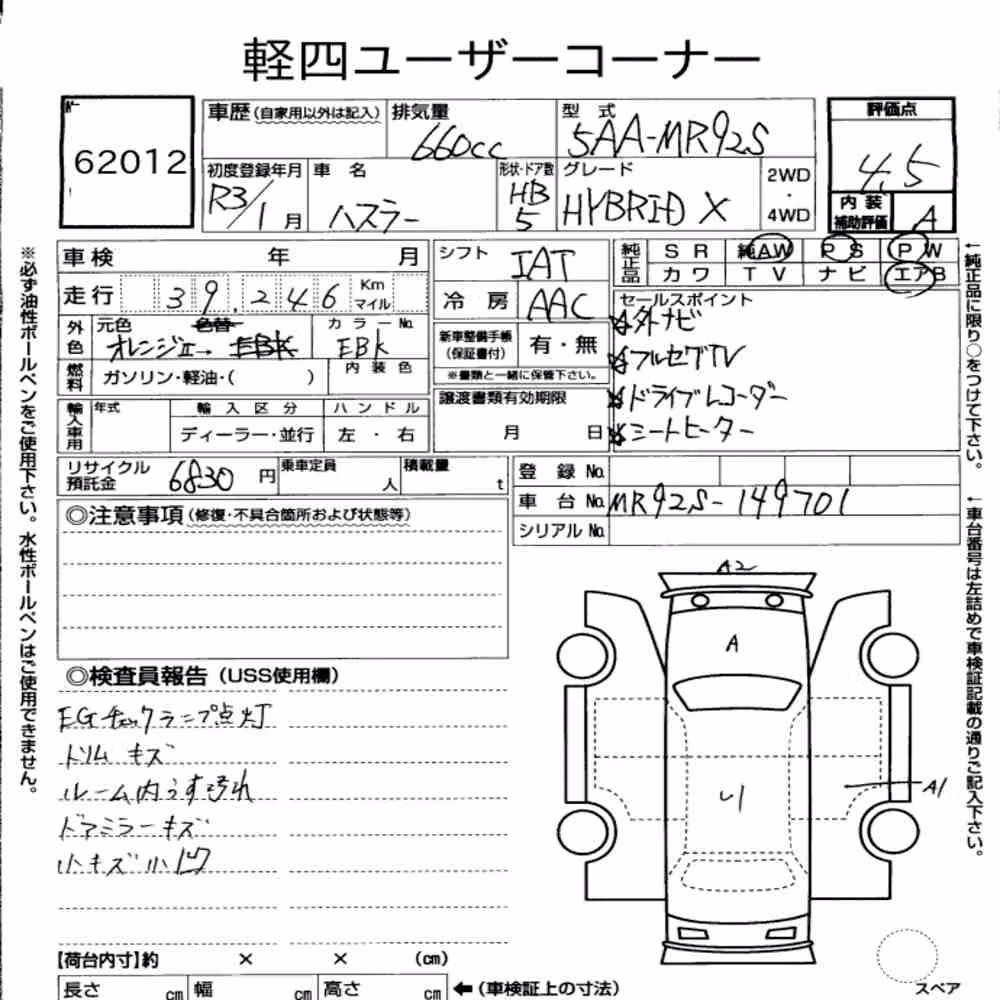 軽四ユーザーコーナー
62012
車歴(自家用以外は記入)
排気量 660cc
型式 5AA-MR92S
評価点 4.5
初度登録年月 R3/1月
車名 ハスラー
形状・ドア数 HB 5
グレード HYBRID X
2WD・4WD
内装補助評価 A
車検 年 月
シフト IAT
純正品 SR 純AW PS PW
カワ TV ナビ エアB
走行 39,246 Km マイル
冷房 AAC
セールスポイント
外ナビ
フルセグTV
ドライブレコーダー
シートヒーター
外色 元色 色替 カラーNo.
オレンジⅡ→ EBK EBK
新車整備手帳(保証書付) 有・無
※書類と一緒に保管下さい。
燃料 ガソリン・軽油・( )
内装色
譲渡書類有効期限
月 日
輸入車用 年式 輸入区分 ハンドル
ディーラー・並行 左・右
リサイクル預託金 6830円
乗車定員 人
積載量 t
登録No.
車台No. MR92S-149701
シリアルNo.
◎注意事項(修復・不具合箇所および状態等)
◎検査員報告(USS使用欄)
EGチェックランプ点灯
トリムキズ
ルーム内うす汚れ
ドアミラーキズ
小キズ小凹
A2
A
A1
【荷台内寸】約 × × (cm)
長さ cm 幅 cm 高さ cm ←(車検証上の寸法)
スペア
※必ず油性ボールペンをご使用下さい。水性ボールペンはご使用できません。
←純正品に限り○をつけて下さい。
←車台番号は左詰めで車検証記載の通りご記入下さい。